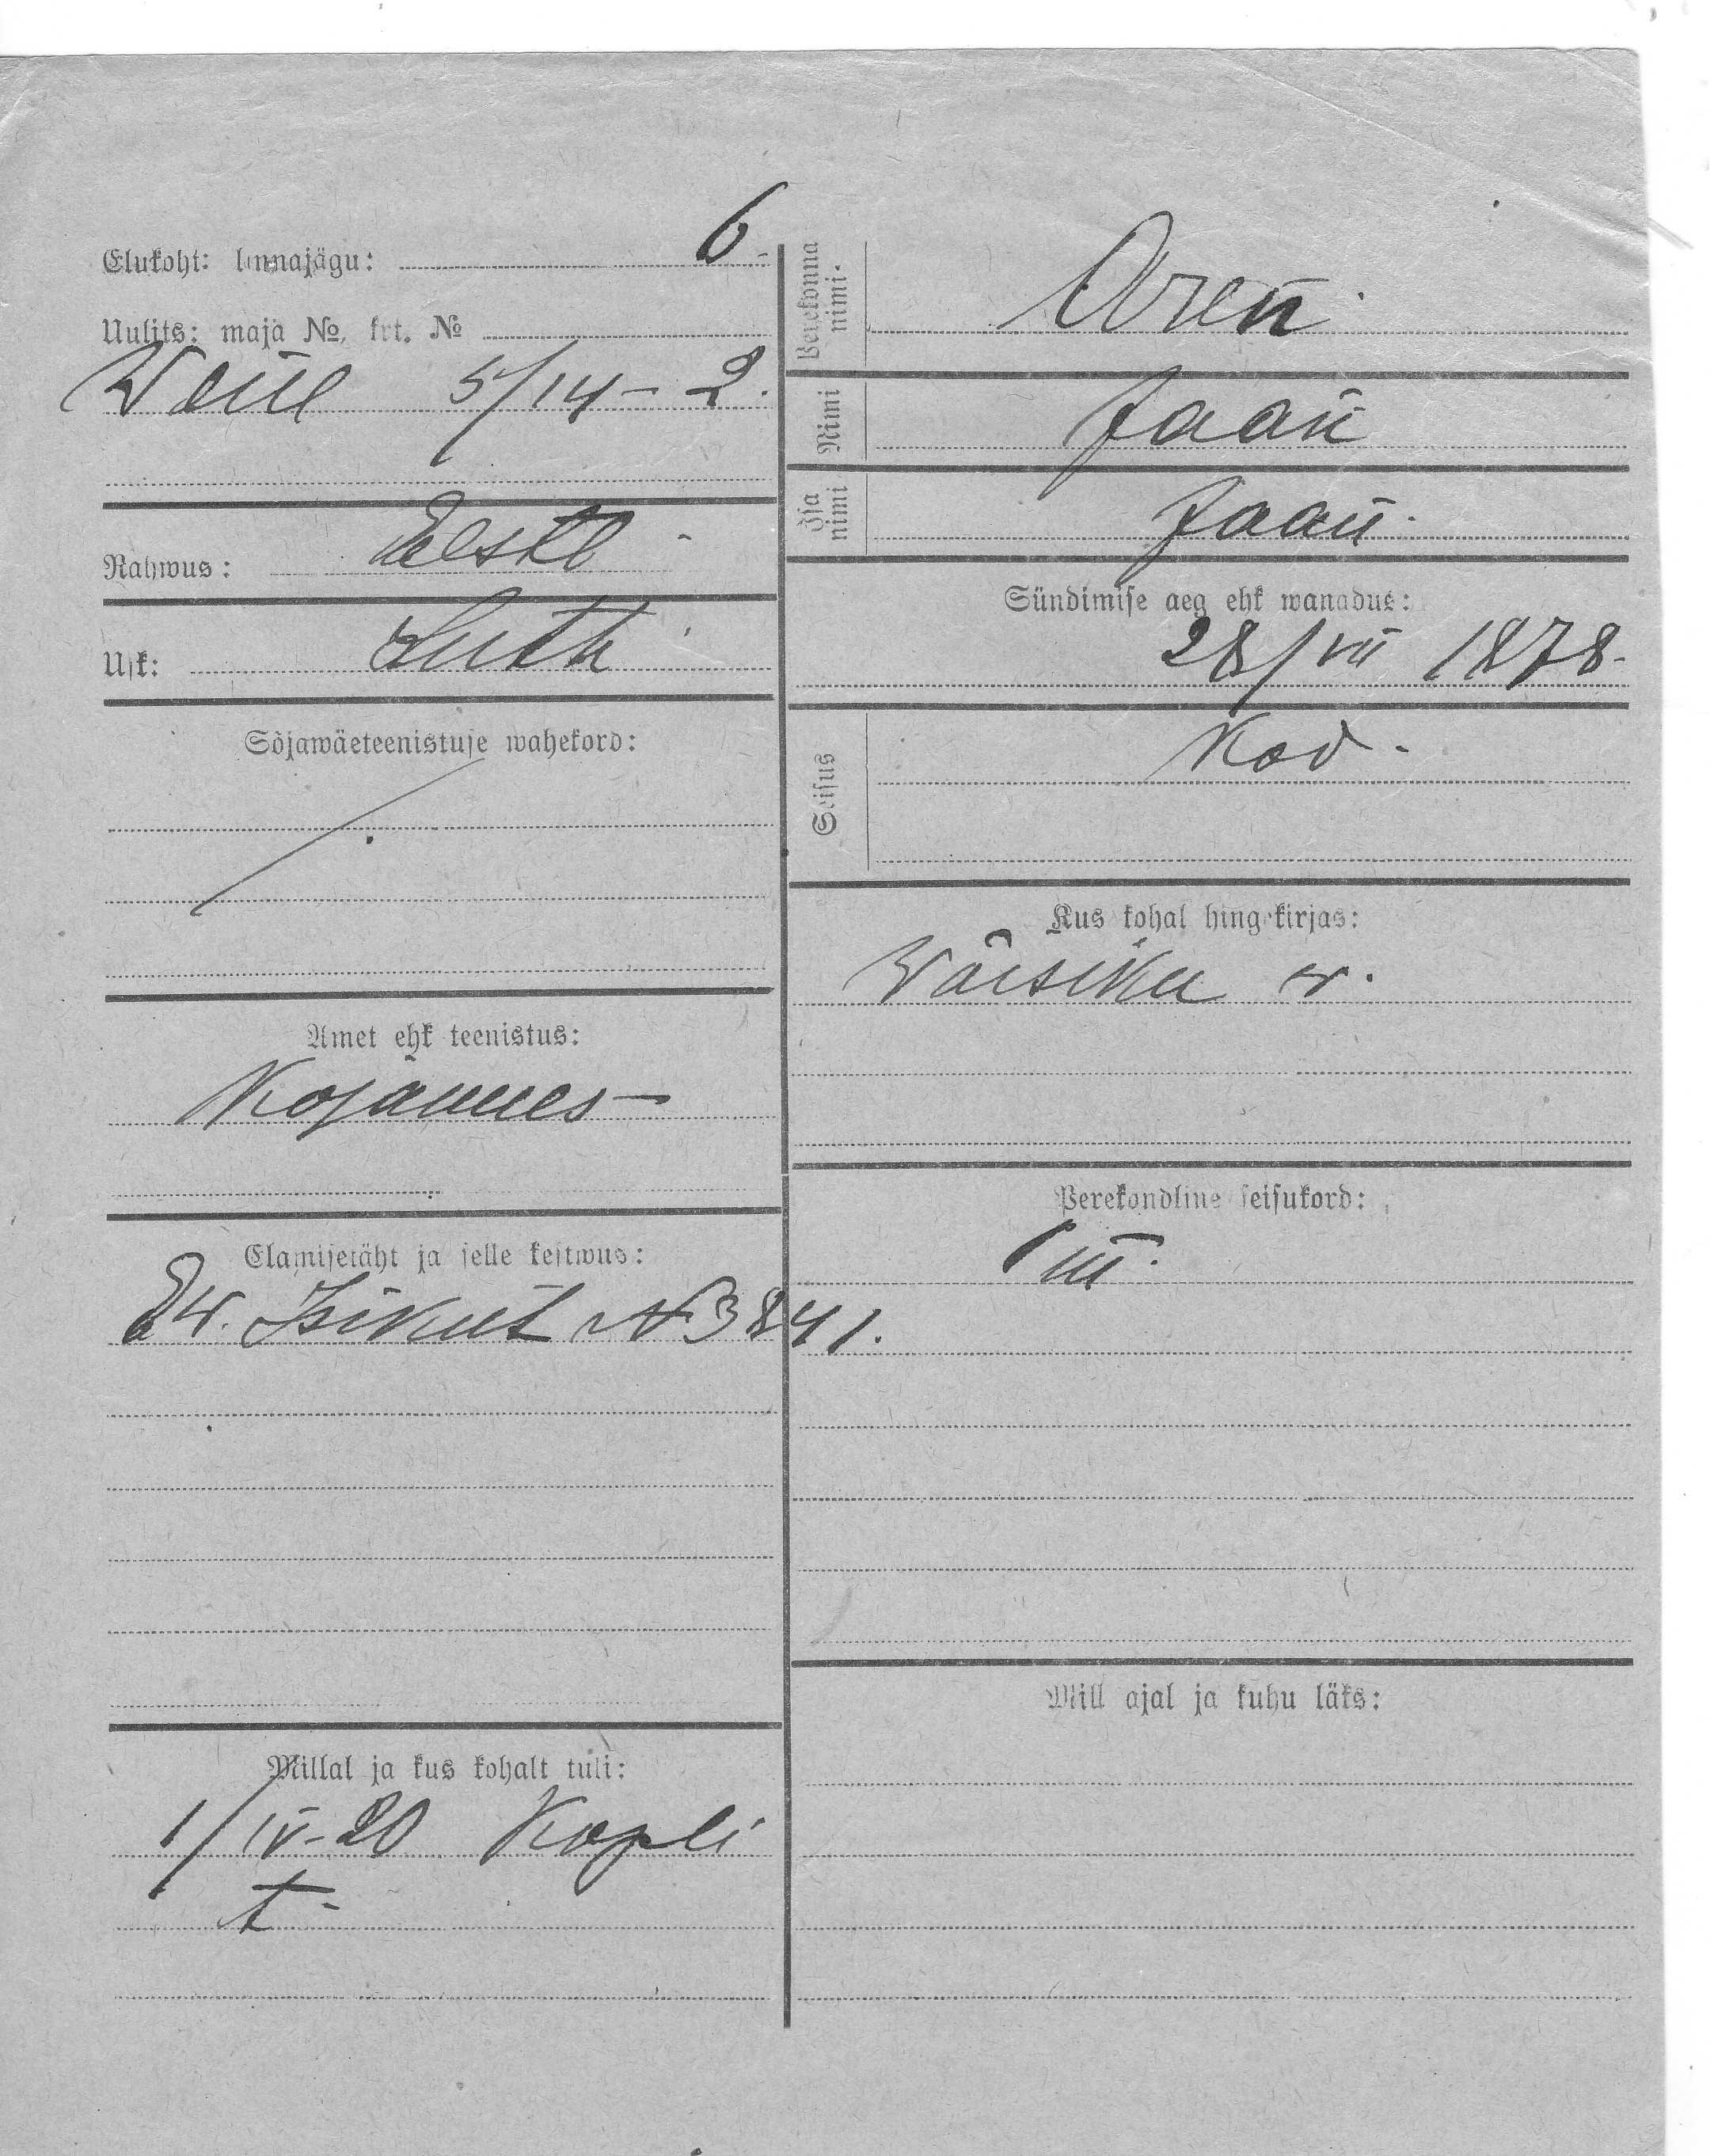 Elukoht: linnajagu: 6
Uulits: maja №, krt. №
Wene 5/14 - 2.
Rahwus: Eesti
Usk: Luth
Sõjawäeteenistuse wahekord:
Amet ehk teenistus:
Kojamees
Elamisetäht ja selle kestwus:
Isikut № 3841.
Millal ja kus kohalt tuli:
1/IV-20 Kopli
t.
Perekonna nimi.
Oren
Nimi Jaan
Isa nimi Jaan
Sündimise aeg ehk wanadus:
28/VII 1878.
Seisus Kod.
Kus kohal hingekirjas:
w.
Perekondline seisukord:
Mill ajal ja kuhu läks: